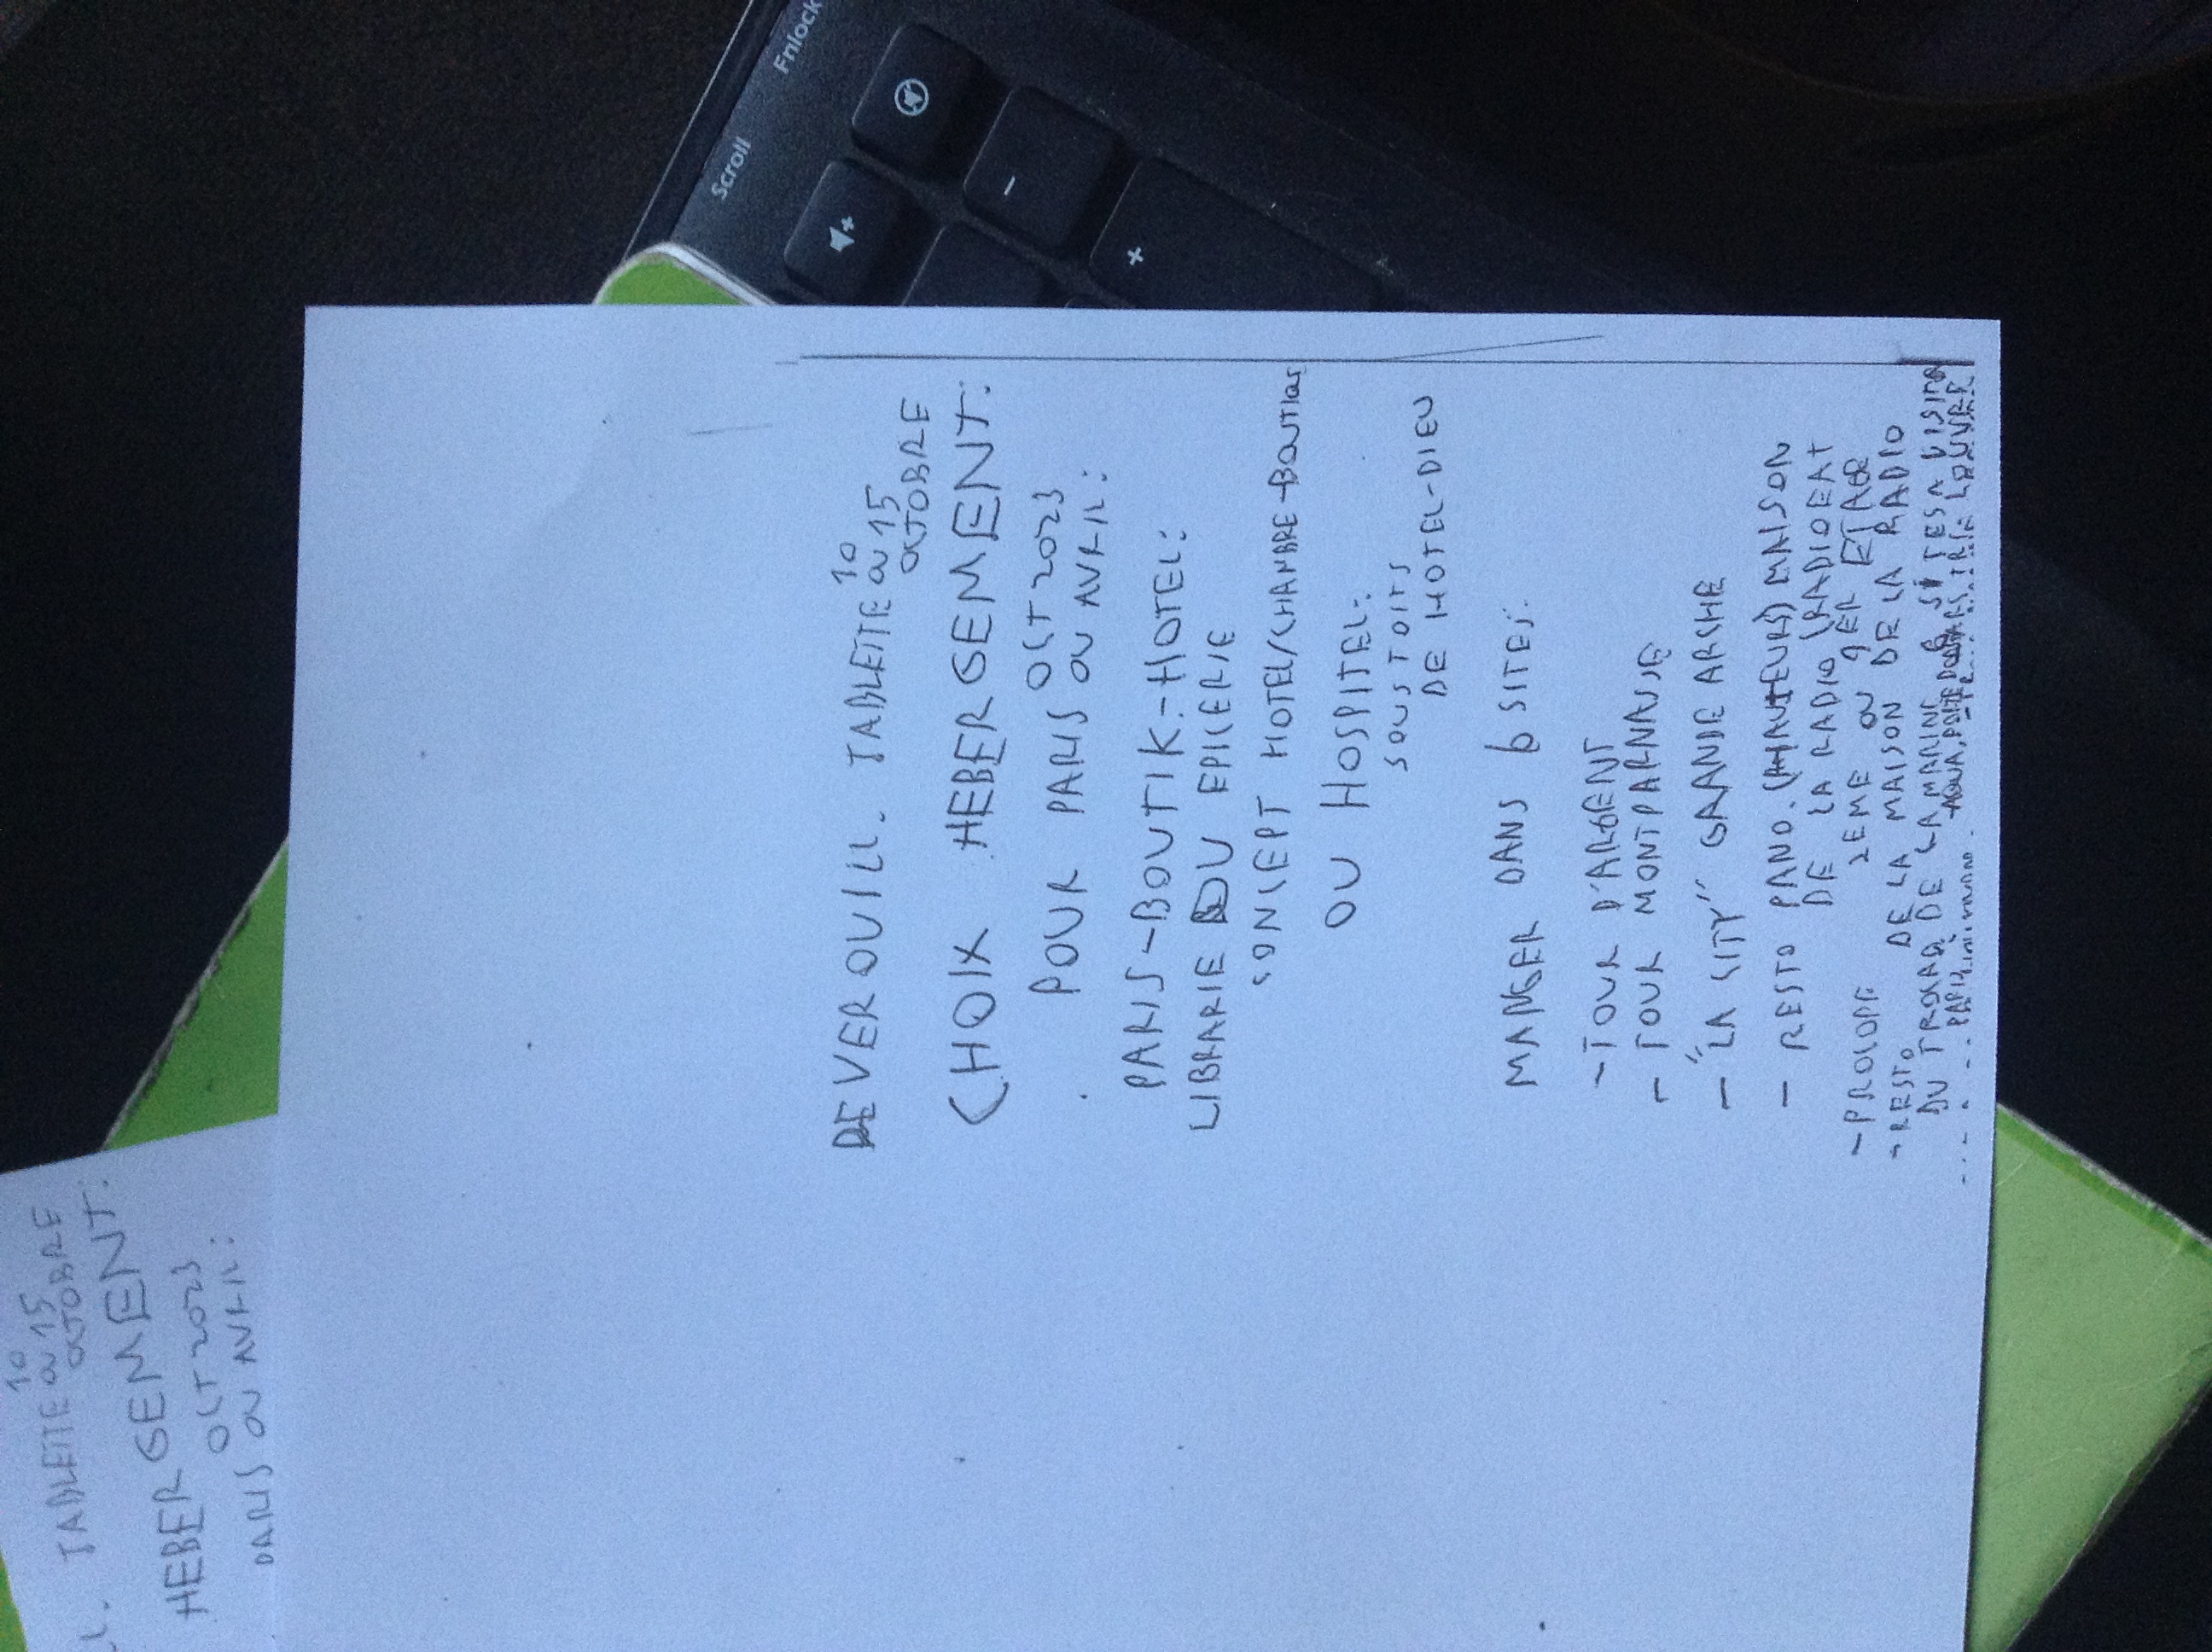 DEVEROUILL. TABLETTE 10
ou 15
OCTOBRE
CHOIX HEBERGEMENT:
POUR PARIS OCT 2023
OU AVRIL:
PARIS-BOUTIK-HOTEL:
LIBRARIE OU EPICERIE
CONCEPT HOTEL/CHAMBRE-BOUTIQUE
OU HOSPITEL:
SOUS TOITS
DE HOTEL-DIEU
MANGER DANS 6 SITES:
- TOUR D'ARGENT
- TOUR MONTPARNASSE
- "LA CITY" GRANDE ARCHE
- RESTO PANO. (HAUTEUR) MAISON
DE LA RADIO (RADIOEAT
- PROCOPE 2EME OU 9ER ETAGE
- RESTO DE LA MAISON DE LA RADIO
DU TROCAD. DE LA MARINE 6 SITES A VISITER
10
TABLETTE ou 15
OCTOBRE
HEBERGEMENT:
OCT 2023
PARIS OU AVRIL:
Fnlock
Scroll
-
+